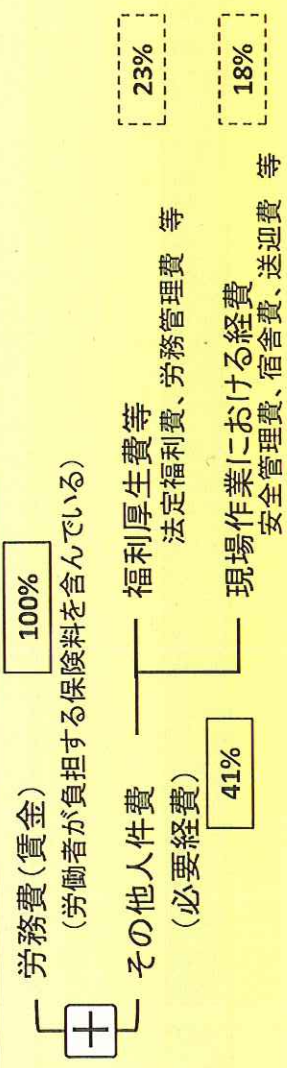 労務費(賃金)
100%
(労働者が負担する保険料を含んでいる)
+
その他人件費
(必要経費)
41%
福利厚生費等
法定福利費、労務管理費 等
23%
現場作業における経費
安全管理費、宿舎費、送迎費 等
18%